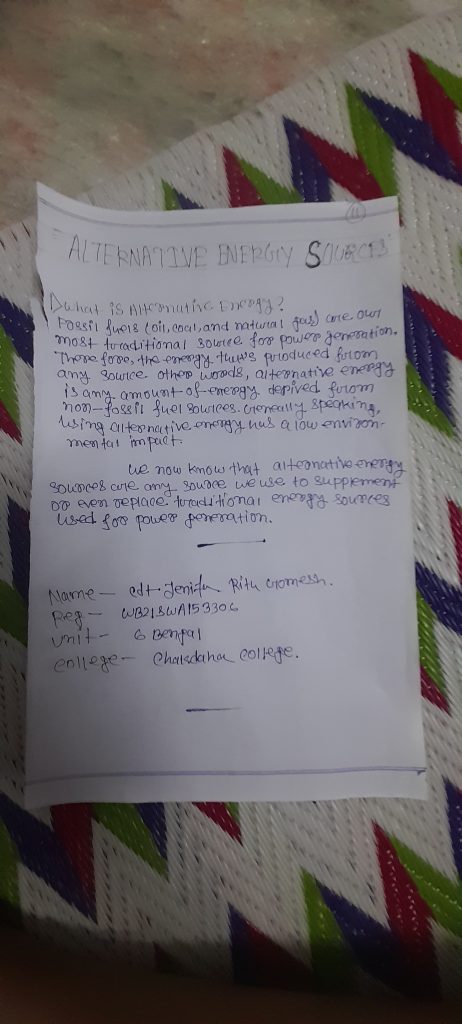 11
ALTERNATIVE ENERGY SOURCES
What is Alternative Energy?
Fossil fuels (oil, coal, and natural gas) are our
most traditional source for power generation.
Therefore, the energy that's produced from
any source other words, alternative energy
is any amount of energy derived from
non-fossil fuel sources. Generally speaking,
using alternative energy has a low environ-
mental impact.
We now know that alternative energy
sources are any source we use to supplement
or even replace traditional energy sources
used for power generation.
Name - cdt Ritu Gomesh.
Reg - WB21SWA153306
Unit - 6 Bengal
College - Chakdaha College.